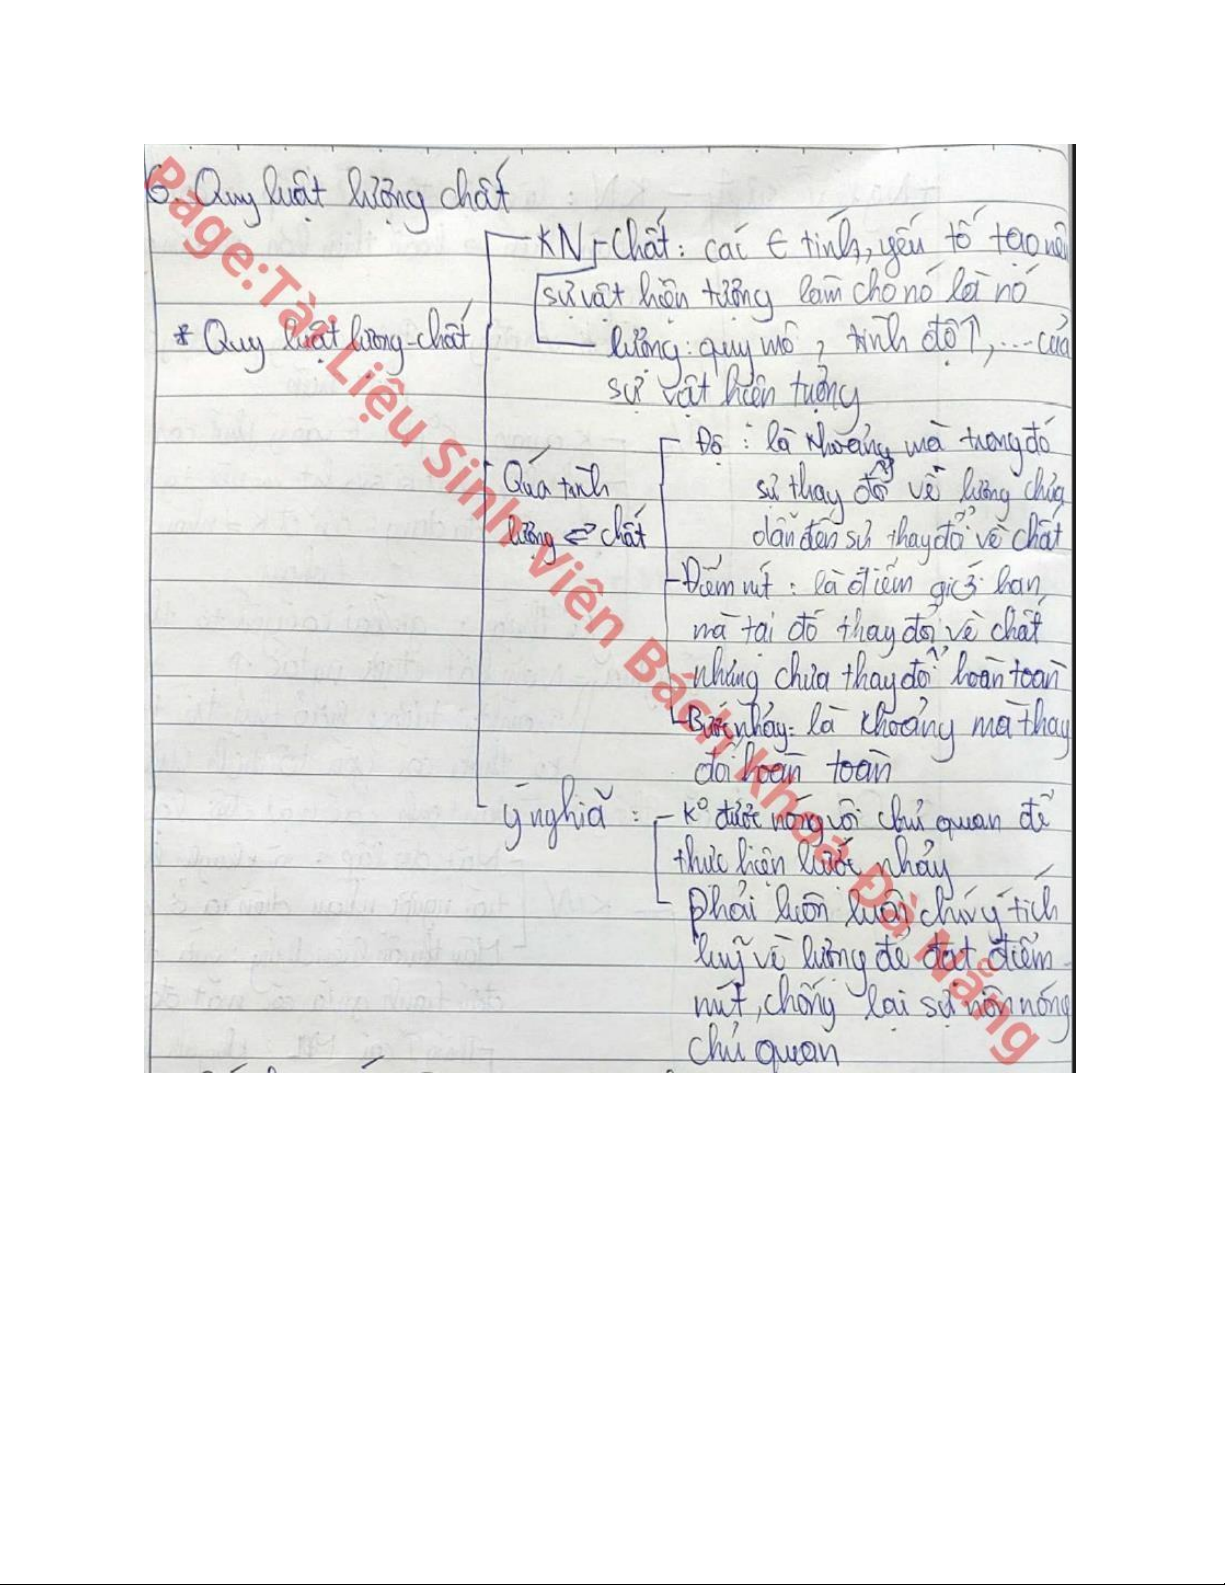 6. Quy luật lượng chất
KN - Chất: các ∈ tính, yếu tố tạo nên
sự vật hiện tượng làm cho nó là nó
* Quy luật lượng-chất
lượng: quy mô, trình độ↑, ... của
sự vật hiện tượng
Độ : là khoảng mà trong đó
Quá trình
sự thay đổi về lượng chưa
lượng ⇔ chất
dẫn đến sự thay đổi về chất
- Điểm nút : là điểm giới hạn,
mà tại đó thay đổi về chất
nhưng chưa thay đổi hoàn toàn
- Bước nhảy: là khoảng mà thay
đổi hoàn toàn
ý nghĩa : - K° được nóng vội chủ quan để
thực hiện bước nhảy
phải luôn luôn chú ý tích
luỹ về lượng để đạt điểm
nút, chống lại sự nôn nóng
chủ quan
Page:Tài Liệu Sinh Viên Bách Khoa Đà Nẵng